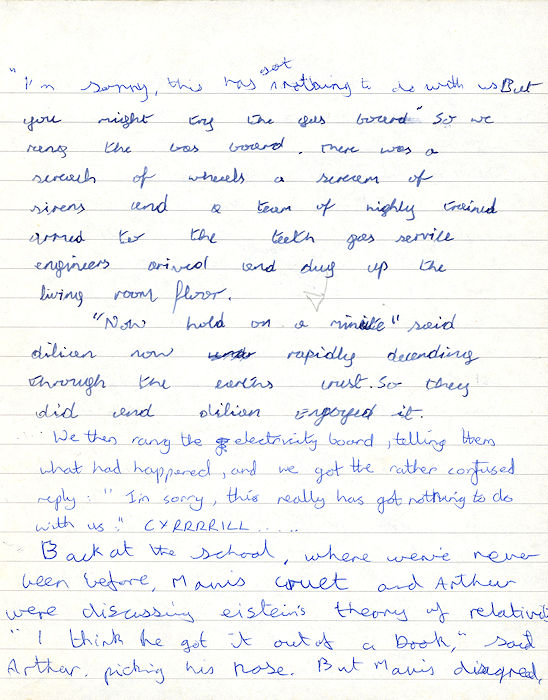 got
"I'm sorry, this has nothing to do with us But
you might try the gas board" So we
rang the gas board. There was a
screech of wheels a scream of
sirens and a team of highly trained
armed to the teeth gas service
engineers arived and dug up the
living room floor.
"Now hold on a minute" said
dilian now rapidly decending
through the earths crust. So they
did and dilian engoyed it.
We then rang the electricity board, telling them
what had happened, and we got the rather confused
reply: "I'm sorry, this really has got nothing to do
with us." CXRRRRILL.....
Back at the school, where we've never
been before, Mavis cruet and Arthur
were discussing eistein's theory of relativi
"I think he got it out of a book," said
Arthur. picking his nose. But Mavis disagred,